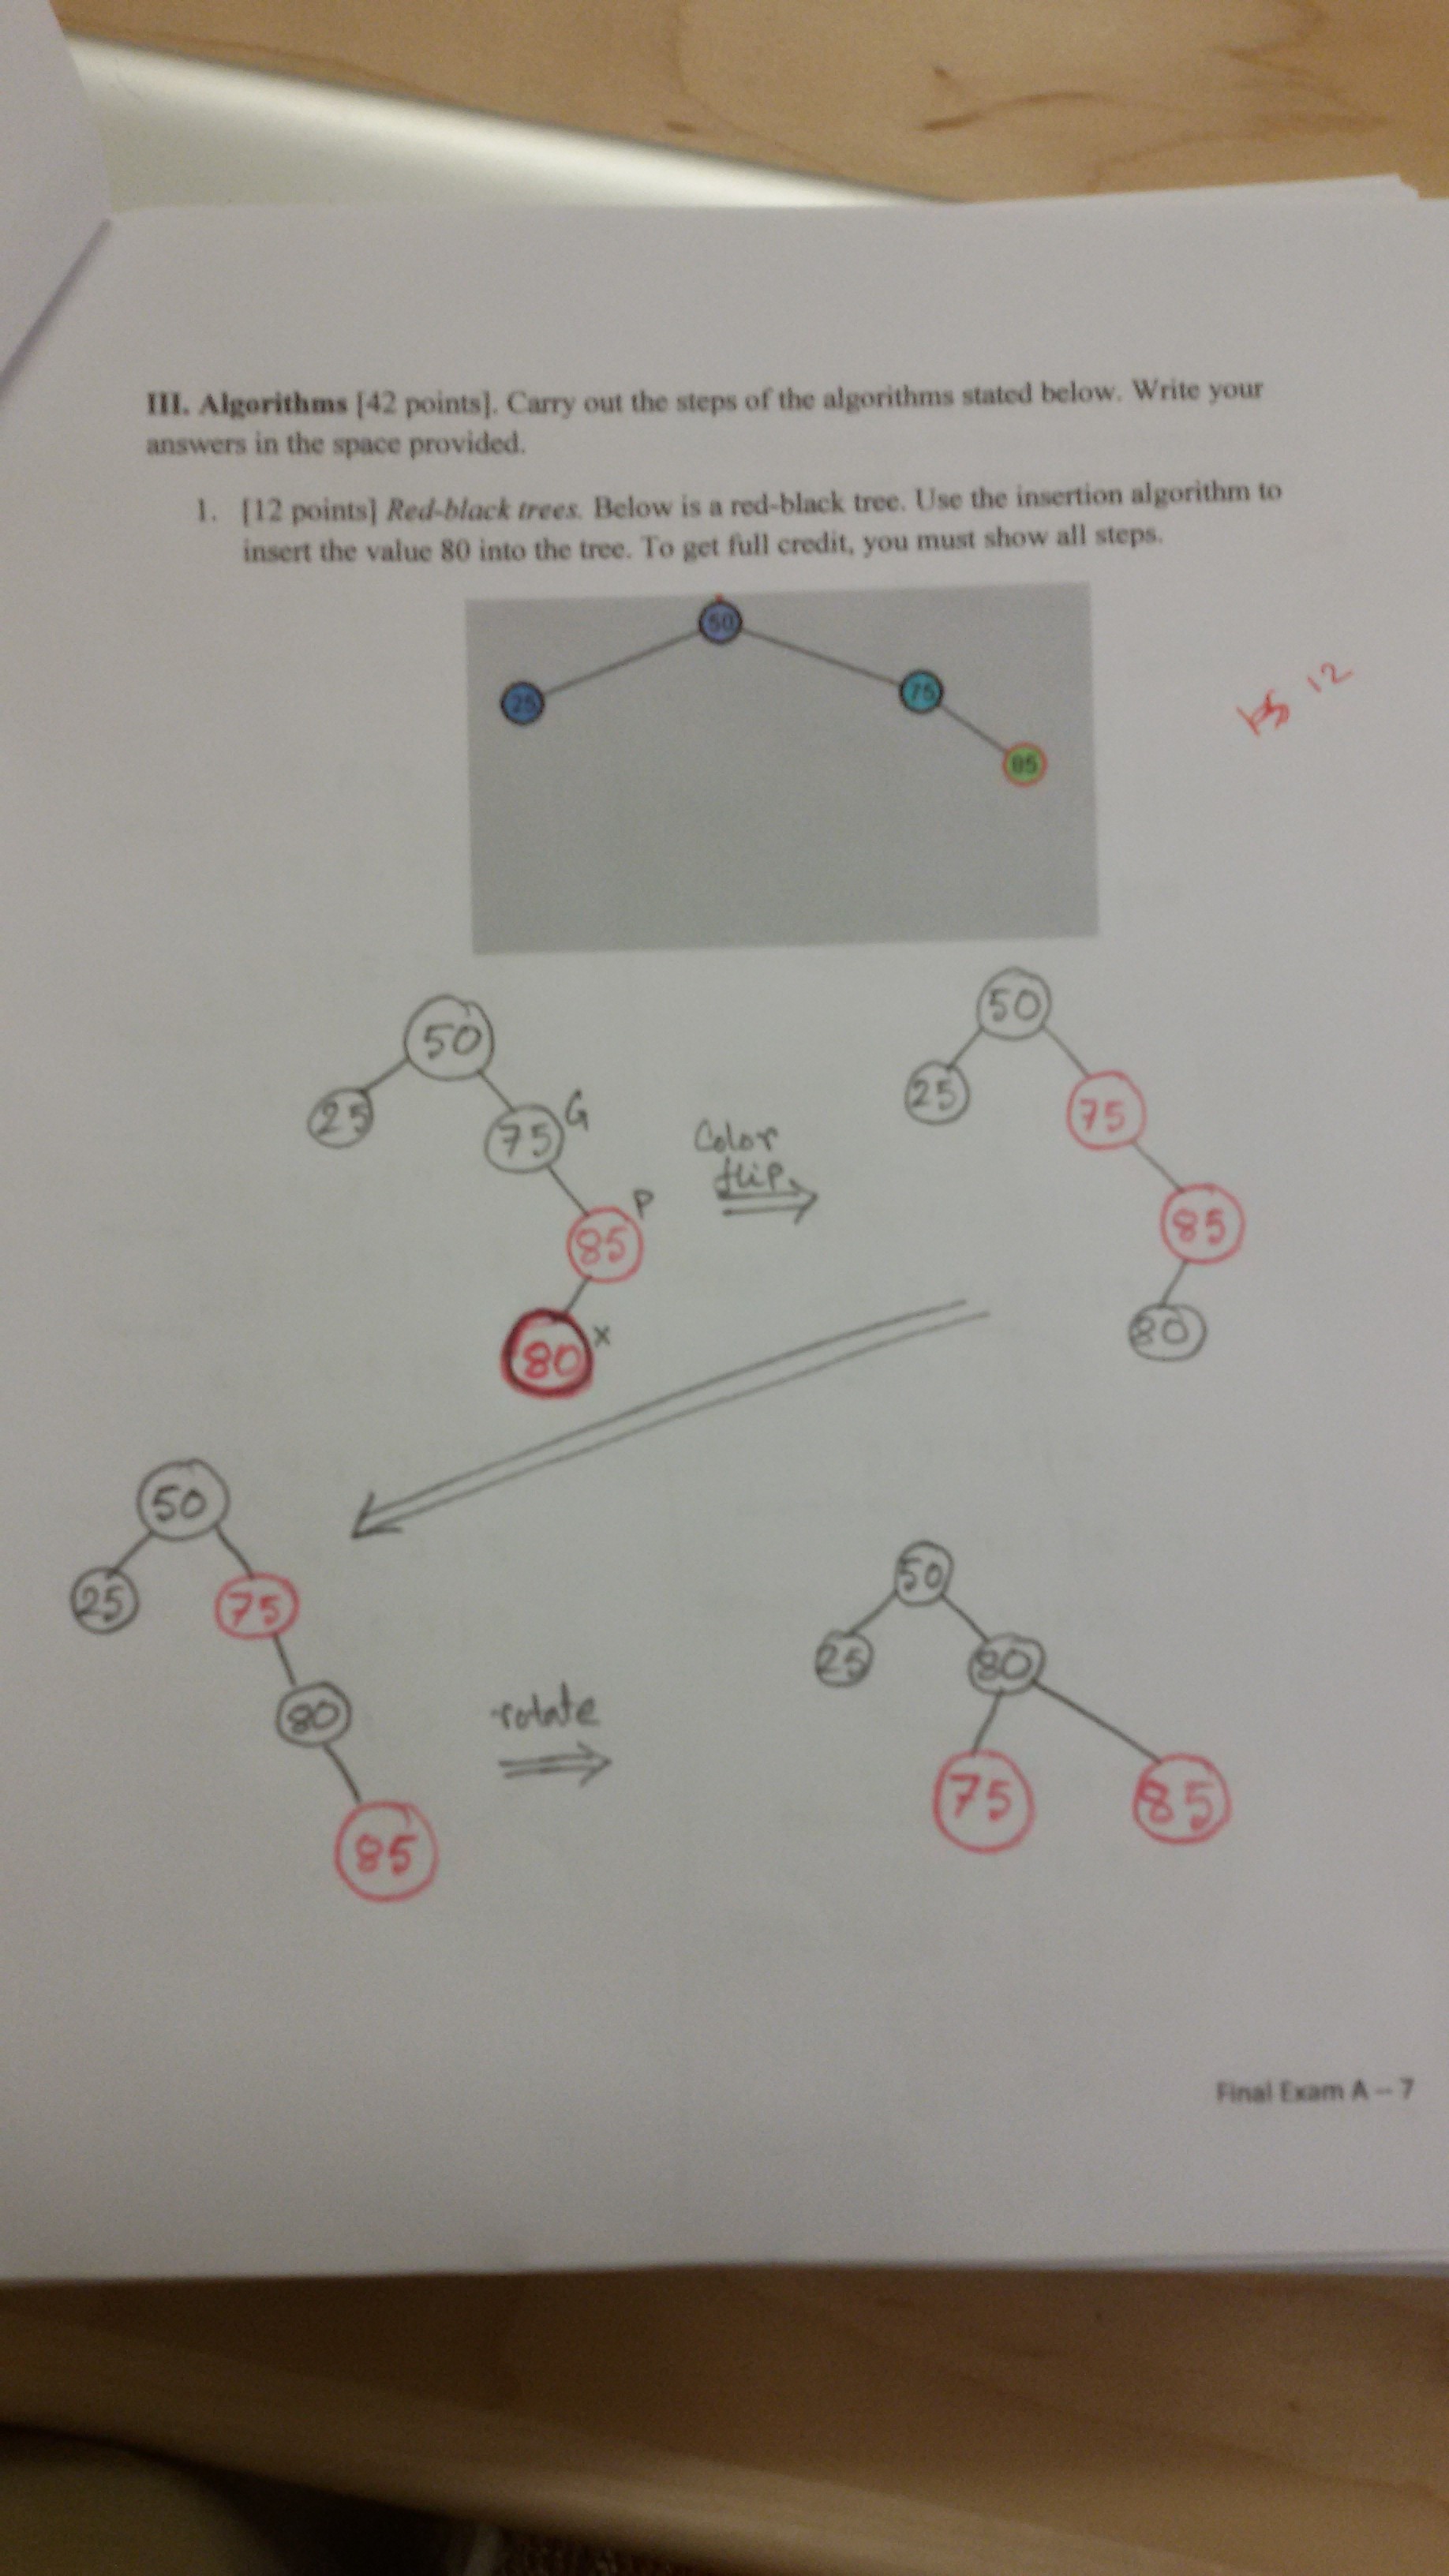 III. Algorithms [42 points]. Carry out the steps of the algorithms stated below. Write your
answers in the space provided.
1. [12 points] Red-black trees. Below is a red-black tree. Use the insertion algorithm to
insert the value 80 into the tree. To get full credit, you must show all steps.
50
25
75
85
12
50
25
75 G
85 P
80 x
Color
flip
50
25
75
85
80
50
25
75
80
85
rotate
50
25
80
75
85
Final Exam A – 7